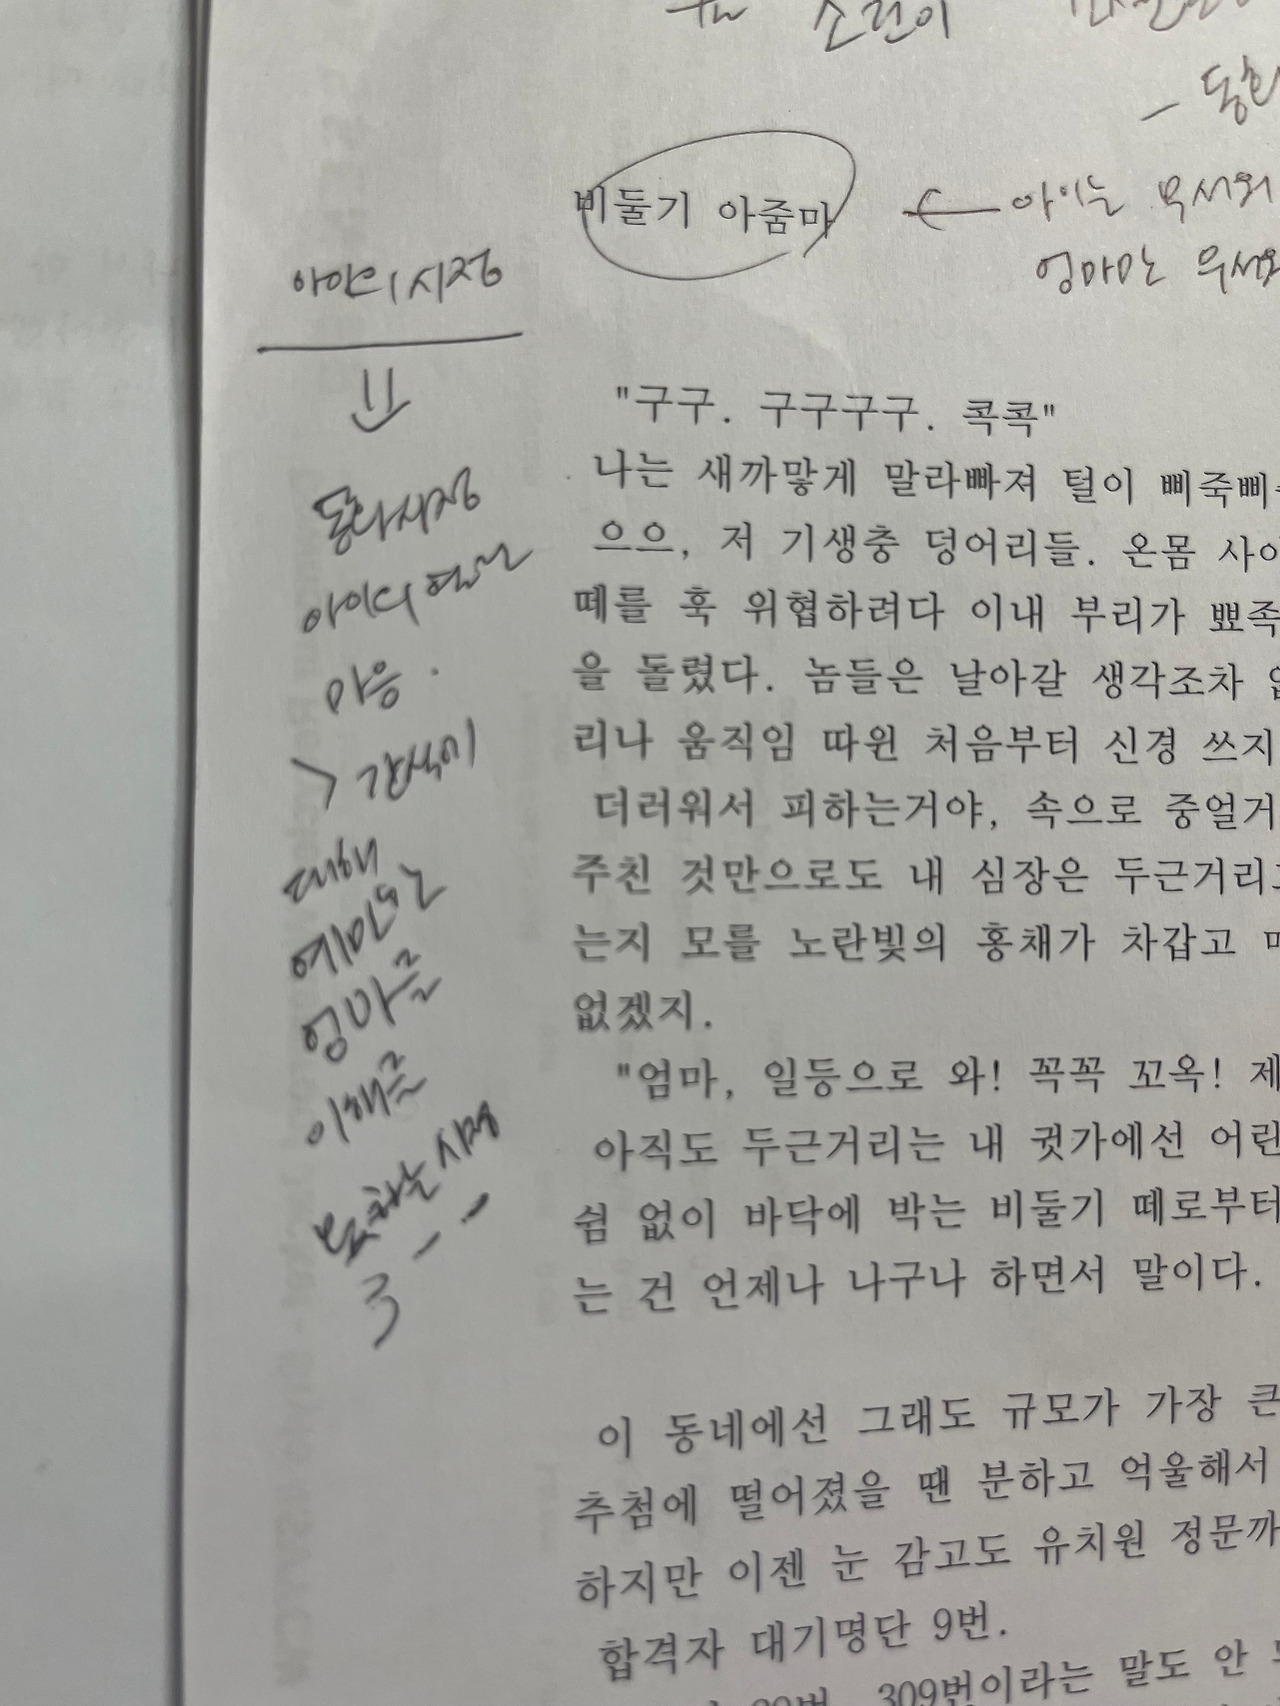 소련이
비둘기 아줌마
아이는 무서워
엄마만 무서워
아이의 시점
동화시점
아이의
마음.
> 간식에
대해
예민한
엄마를
이해를
못하는 시점
"구구. 구구구구. 콕콕"
나는 새까맣게 말라빠져 털이 삐죽삐죽
으으, 저 기생충 덩어리들. 온몸 사이
떼를 훅 위협하려다 이내 부리가 뾰족
을 돌렸다. 놈들은 날아갈 생각조차
리나 움직임 따윈 처음부터 신경 쓰지
더러워서 피하는거야, 속으로 중얼거
주친 것만으로도 내 심장은 두근거리고
는지 모를 노란빛의 홍채가 차갑고
없겠지.
"엄마, 일등으로 와! 꼭꼭 꼬옥! 제
아직도 두근거리는 내 귓가에선 어린
쉼 없이 바닥에 박는 비둘기 떼로부터
는 건 언제나 나구나 하면서 말이다.
이 동네에선 그래도 규모가 가장 큰
추첨에 떨어졌을 땐 분하고 억울해서
하지만 이젠 눈 감고도 유치원 정문까
합격자 대기명단 9번.
309번이라는 말도 안